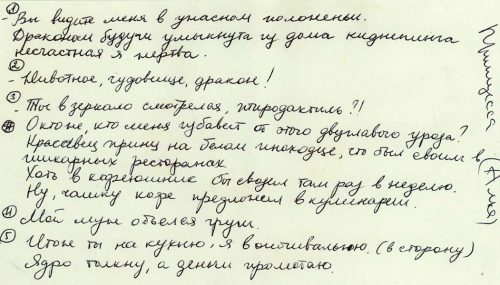 ①
- Вы видите меня в ужасном положеньи.
Драконом будучи умыкнута из дома киднепинга
несчастная я жертва.
②
- Животное, чудовище, дракон!
③
- Ты в зеркало смотрелся, птиродактиль?!
О кто же, кто меня избавит от этого двуглавого урода?
Красавец принц на белом иноходце, что был своим в
шикарных ресторанах.
Хоть в кофеюшник бы сводил там раз в неделю.
Ну, чашку кофе предложил в кулинарии.
④
- Мой муж объелся груш.
⑤
- Итожь ты на кухню, я в (в сторону)
Ядро толкну, а деньги промотаю.
Принцесса (Аня)